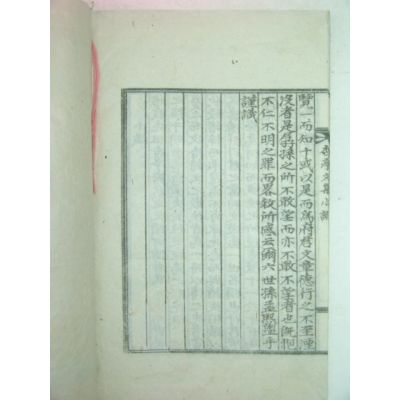 覽一而知十或以是而爲府君文章德行之不至湮
沒者是孱孫之所不敢望而亦不敢不望者也旣抱
不仁不明之罪而畧敘所感云爾六世孫孟熙謹手
謹識
文集小識